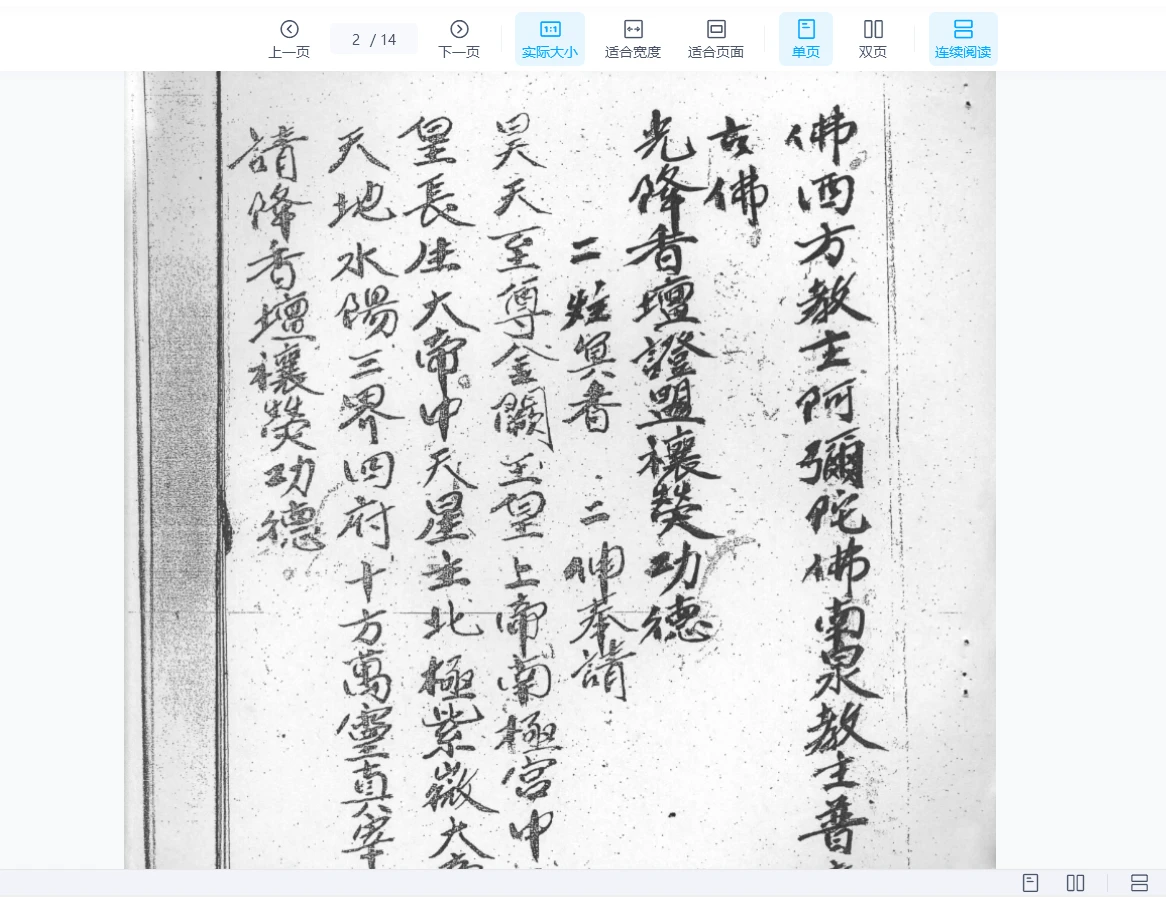 上一页
2 / 14
下一页
实际大小
适合宽度
适合页面
单页
双页
连续阅读
佛西方教主阿彌陀佛南泉教主普
古佛
光降香壇證盟禳熒功德
二炷冥香 二伸奉請
昊天至尊金闕玉皇上帝南極宮中
皇長生大帝中天星主北極紫微大帝
天地水陽三界四府十方萬靈真宰
請降香壇禳熒功德